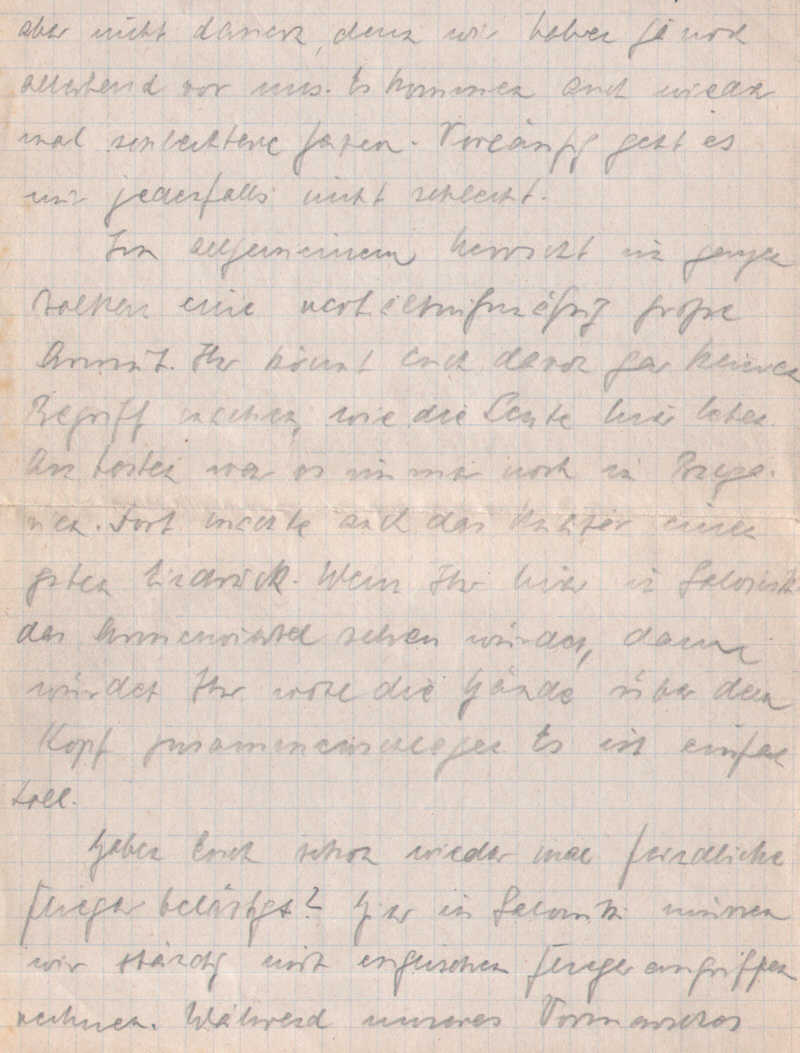 aber nicht dauern, denn wir haben ja noch
allerhand vor uns. Es kommen auch wieder
mal schlechtere Zeiten. Vorläufig geht es
mir jedenfalls nicht schlecht.
Im allgemeinen herrscht im ganzen
Balkan eine verhältnismäßig große
Armut. Ihr könnt Euch davon gar keinen
Begriff machen, wie die Leute hier leben.
Am besten war es immer noch in
Dort machte auch das einen
guten Eindruck. Wenn Ihr hier in Saloniki
das Armenviertel sehen würdet, dann
würdet Ihr wohl die Hände über dem
Kopf zusammenschlagen. Es ist einfach
toll.
Haben Euch schon wieder mal feindliche
Flieger belästigt? Hier in Saloniki müssen
wir ständig mit englischen Fliegerangriffen
rechnen. Während unseres Vormarsches